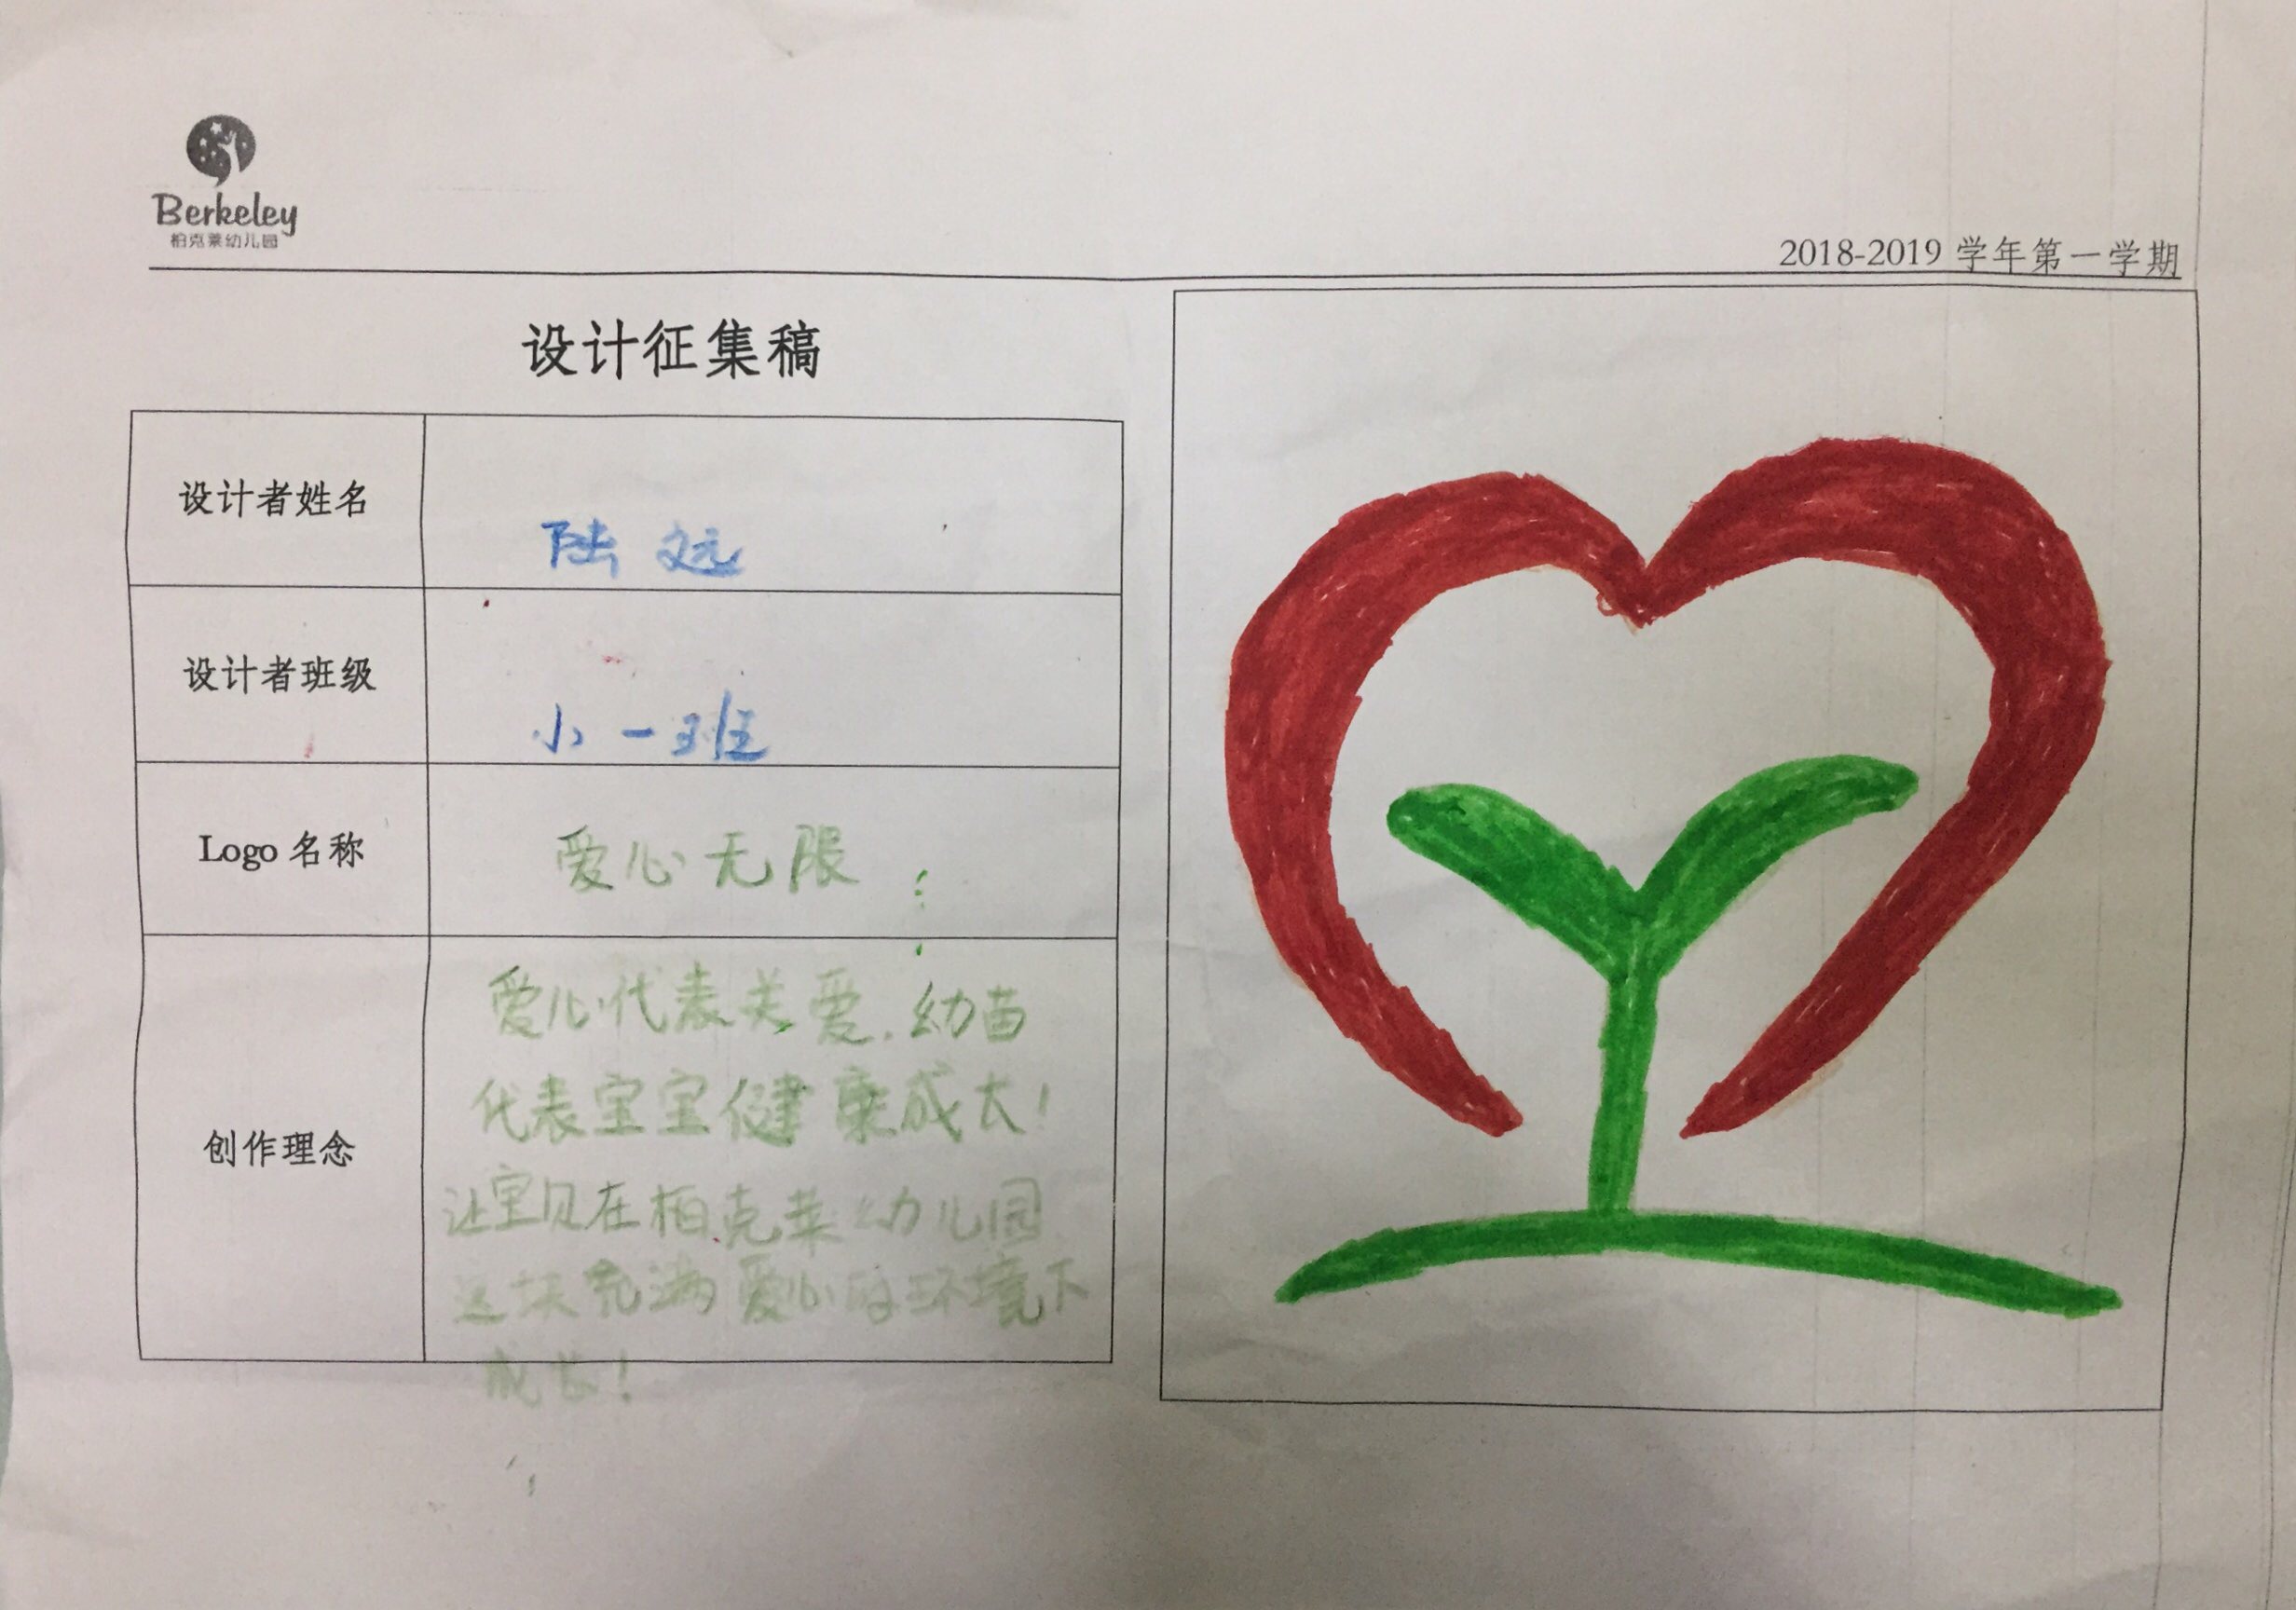 Berkeley
柏克莱幼儿园
2018-2019 学年第一学期
设计征集稿
设计者姓名
陆文远
设计者班级
小一班
Logo 名称
爱心无限
创作理念
爱心代表关爱.幼苗
代表宝宝健康成长!
让宝贝在柏克莱幼儿园
这块充满爱心的环境下
成长!